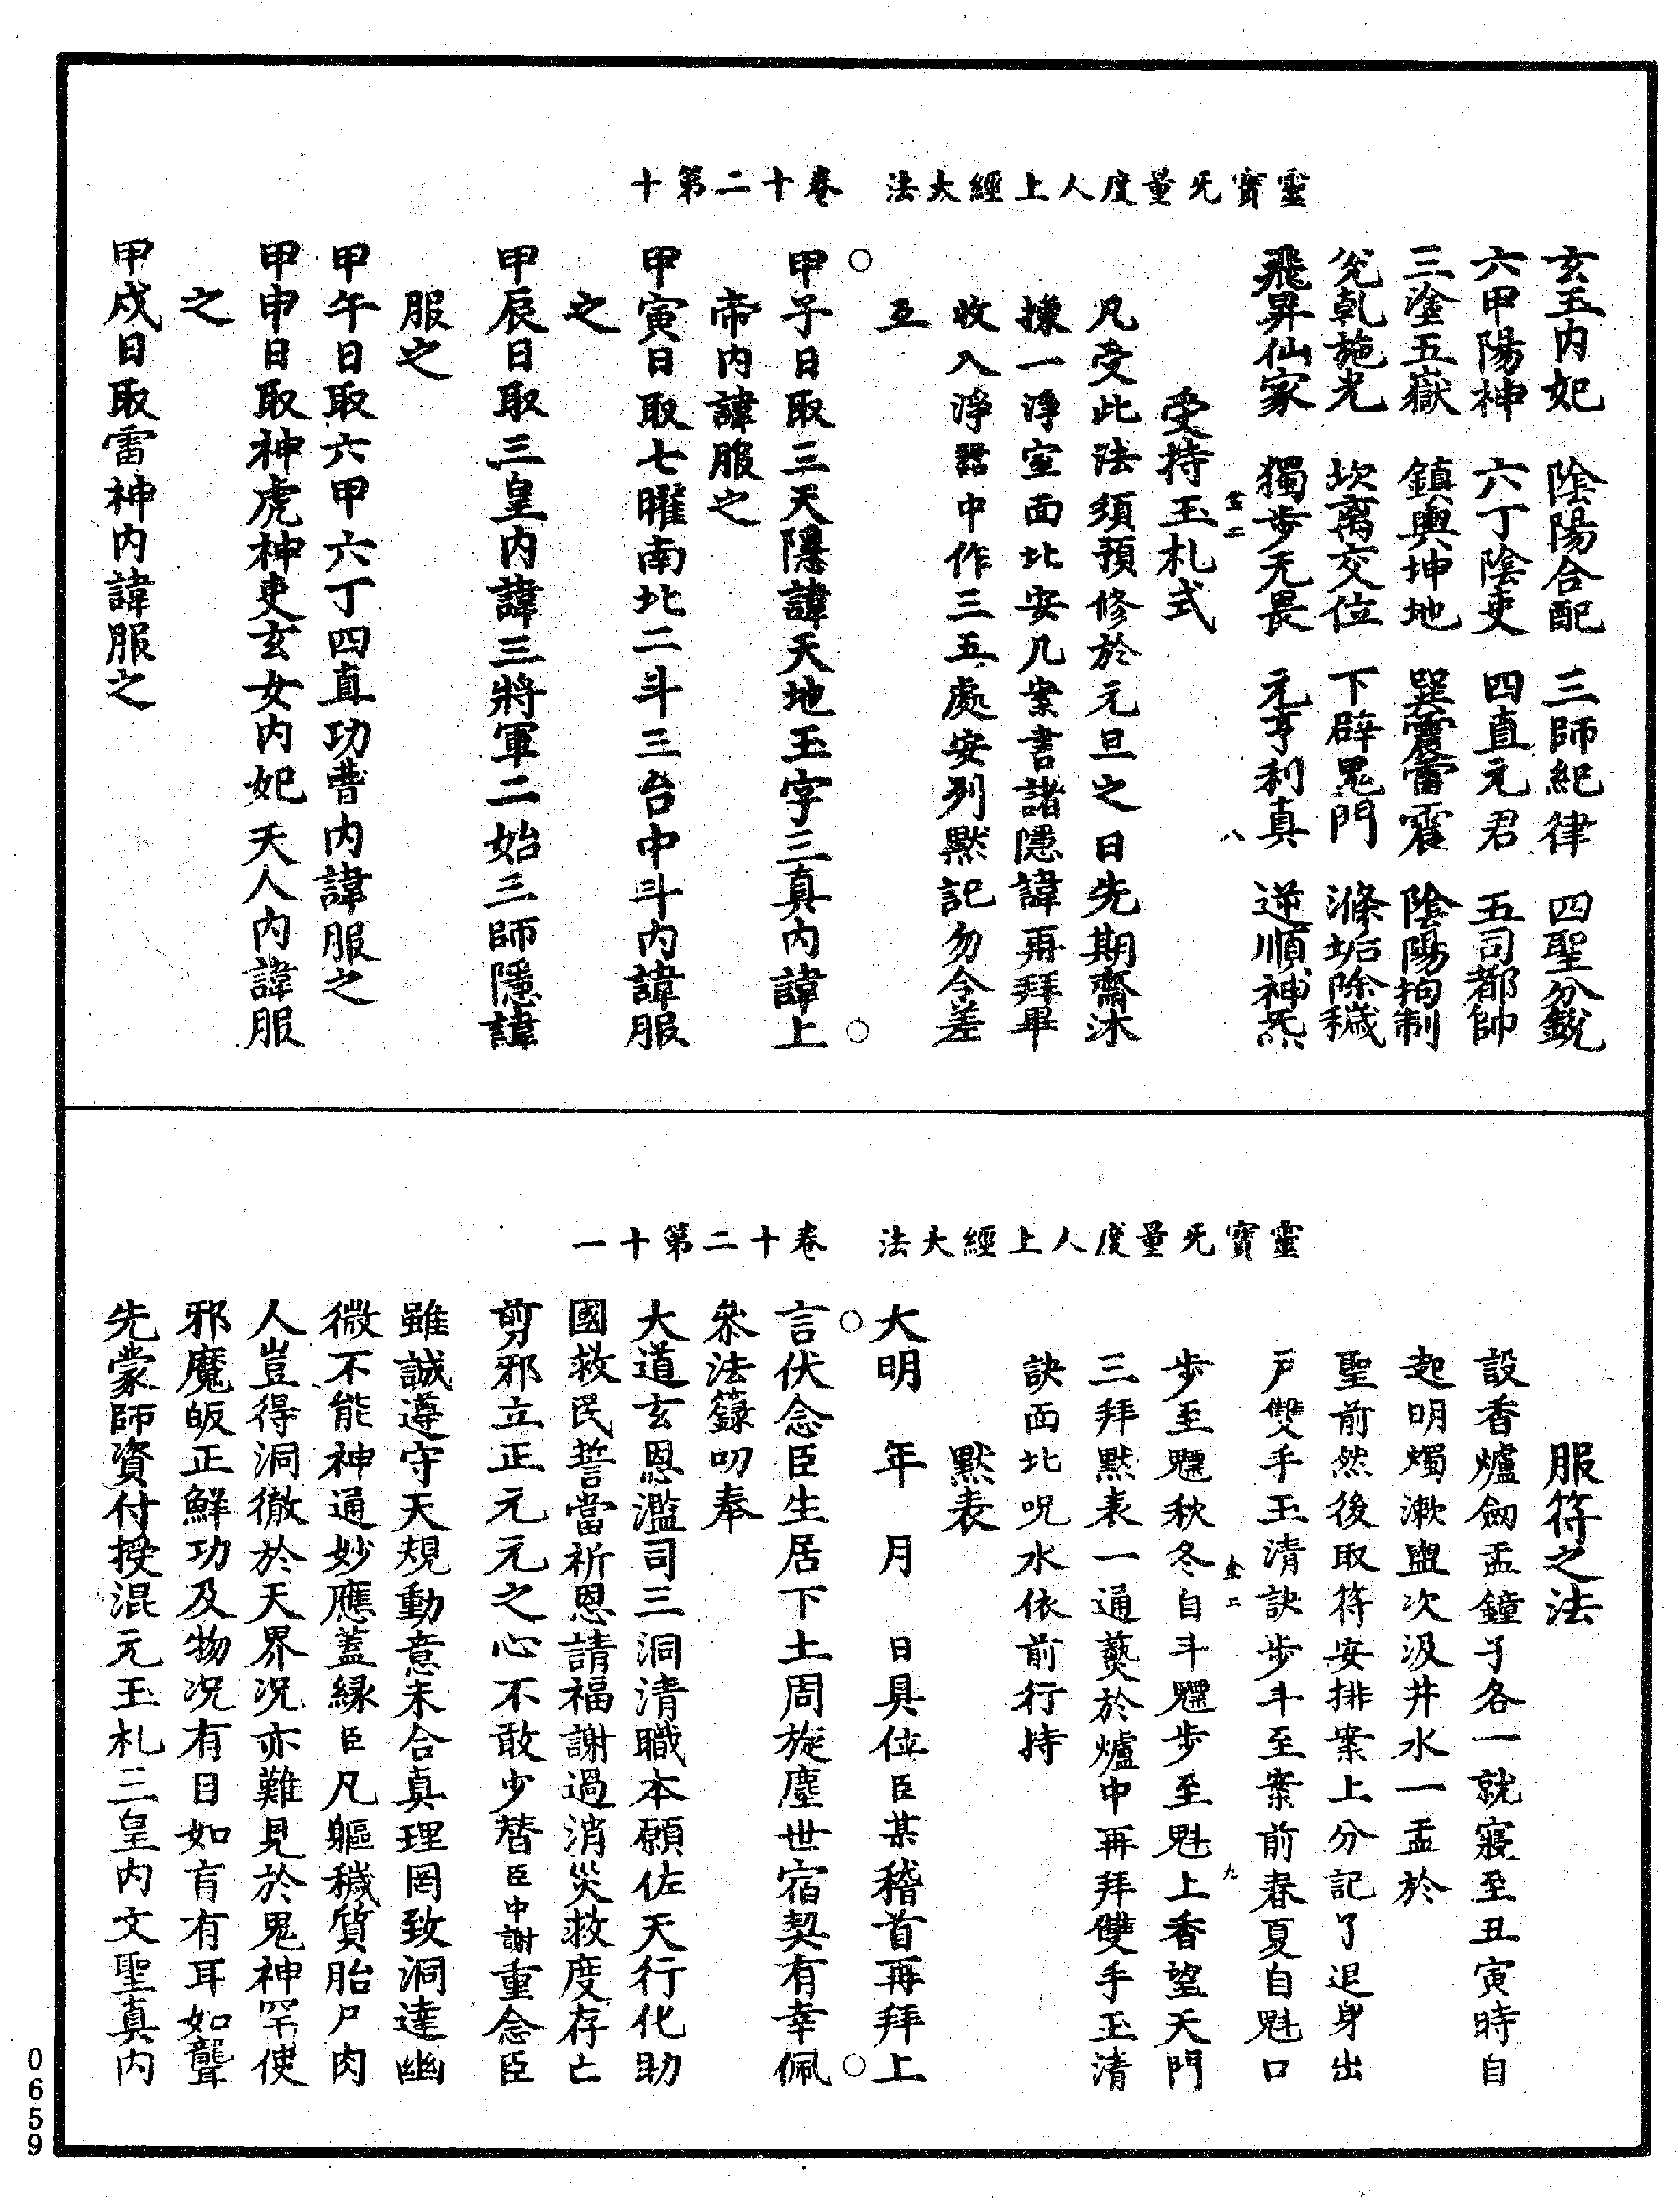 靈寶无量度人上經大法　卷十二第十
玄玉內妃　陰陽合配　三師紀律　四聖分鋭
六甲陽神　六丁陰吏　四直元君　五司都帥
三塗五嶽　鎮輿坤地　巽震雷霍　陰陽拘制
兊乹施光　坎离交位　下辟鬼門　滌垢除穢
飛昇仙家　獨步无畏　元亨利真　逆順神炁
金二　八
受持玉札式
凡受此法須預修於元旦之日先期齋沐
揀一淨室面北安几案書諸隱諱再拜畢
收入淨器中作三五處安列默記勿令差
互
○　○
甲子日取三天隱諱天地玉字三真內諱上
帝內諱服之
甲寅日取七曜南北二斗三台中斗內諱服
之
甲辰日取三皇內諱三將軍二始三師隱諱
服之
甲午日取六甲六丁四直功曹內諱服之
甲申日取神虎神吏玄女內妃天人內諱服
之
甲戌日取雷神內諱服之
靈寶无量度人上經大法　卷十二第十一
服符之法
設香爐劒盂鐘子各一就寢至丑寅時自
起明燭漱盥次汲井水一盂於
聖前然後取符安排案上分記了退身出
戶雙手玉清訣步斗至案前春夏自魁口
金二　九
步至魒秋冬自斗魒步至魁上香望天門
三拜默表一通爇於爐中再拜雙手玉清
訣面北呪水依前行持
默表
大明　年　月　日具位臣某稽首再拜上
○　○
言伏念臣生居下土周旋塵世宿契有幸佩
叅法籙叨奉
大道玄恩濫司三洞清職本願佐天行化助
國救民誓當祈恩請福謝過消災救度存亡
剪邪立正元元之心不敢少替臣中謝重念臣
雖誠遵守天規動意未合真理罔致洞達幽
微不能神通妙應蓋緣臣凡軀穢質胎尸肉
人豈得洞徹於天界况亦難見於鬼神罕使
邪魔皈正鮮功及物况有目如盲有耳如聾
先蒙師資付授混元玉札三皇內文聖真內
0659